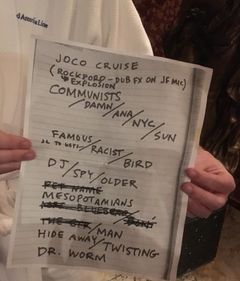 JOCO CRUISE
(ROCKPORD - DUB FX ON JF MIC)
EXPLOSION
COMMUNISTS
DAMN/ANA/NYC/SUN
FAMOUS/RACIST/BIRD
DJ/SPY/OLDER
PET NAME
MESOPOTAMIANS
/MAN
HIDE AWAY/TWISTING
DR. WORM